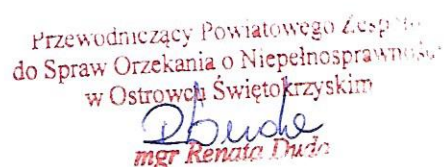 Przewodniczący Powiatowego Zespołu
do Spraw Orzekania o Niepełnosprawności
w Ostrowcu Świętokrzyskim
mgr Renata Duda